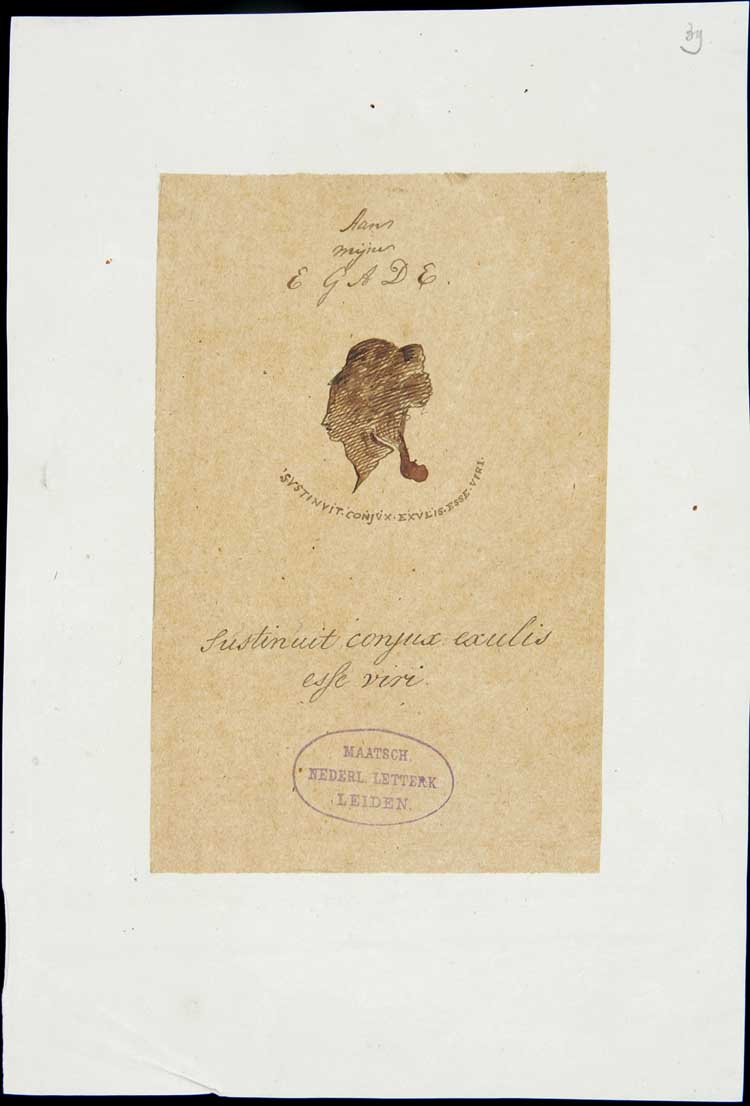 Aan
mijne
EGADE.
SVSTINVIT·CONJVX·EXVLIS·ESSE·VIRI·
Sustinuit conjux exulis
esse viri.
MAATSCH.
NEDERL. LETTERK.
LEIDEN.